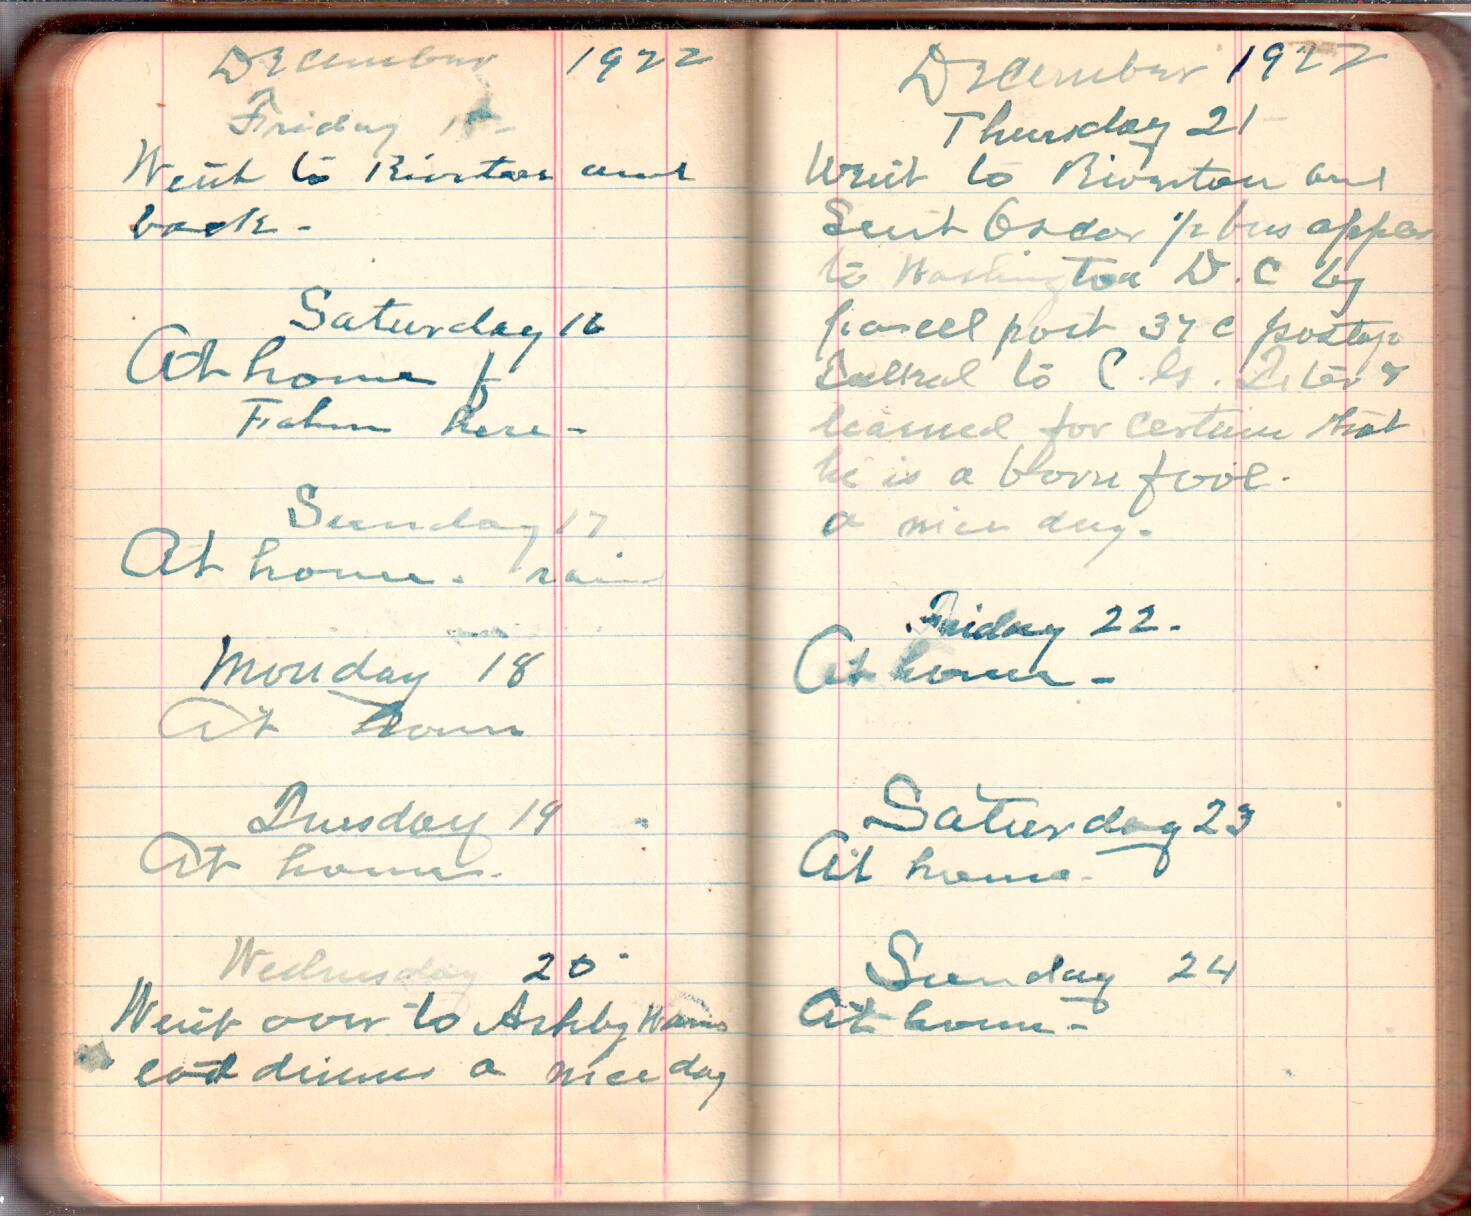 December 1922
Friday 15-
Went to Riverton and
back-
Saturday 16
At home
Fahm here-
Sunday 17
At home. rain
Monday 18
At home
Tuesday 19
At home.
Wednesday 20
Went over to Ashby
eat dinner a nice day
December 1922
Thursday 21
Went to Riverton and
Sent Oscar 1/2 bus apples
to Washington D.C by
parcel post 37c postage
talked to C.
learned for certain that
he is a born fool.
a nice day.
Friday 22-
At home-
Saturday 23
At home-
Sunday 24
At home-